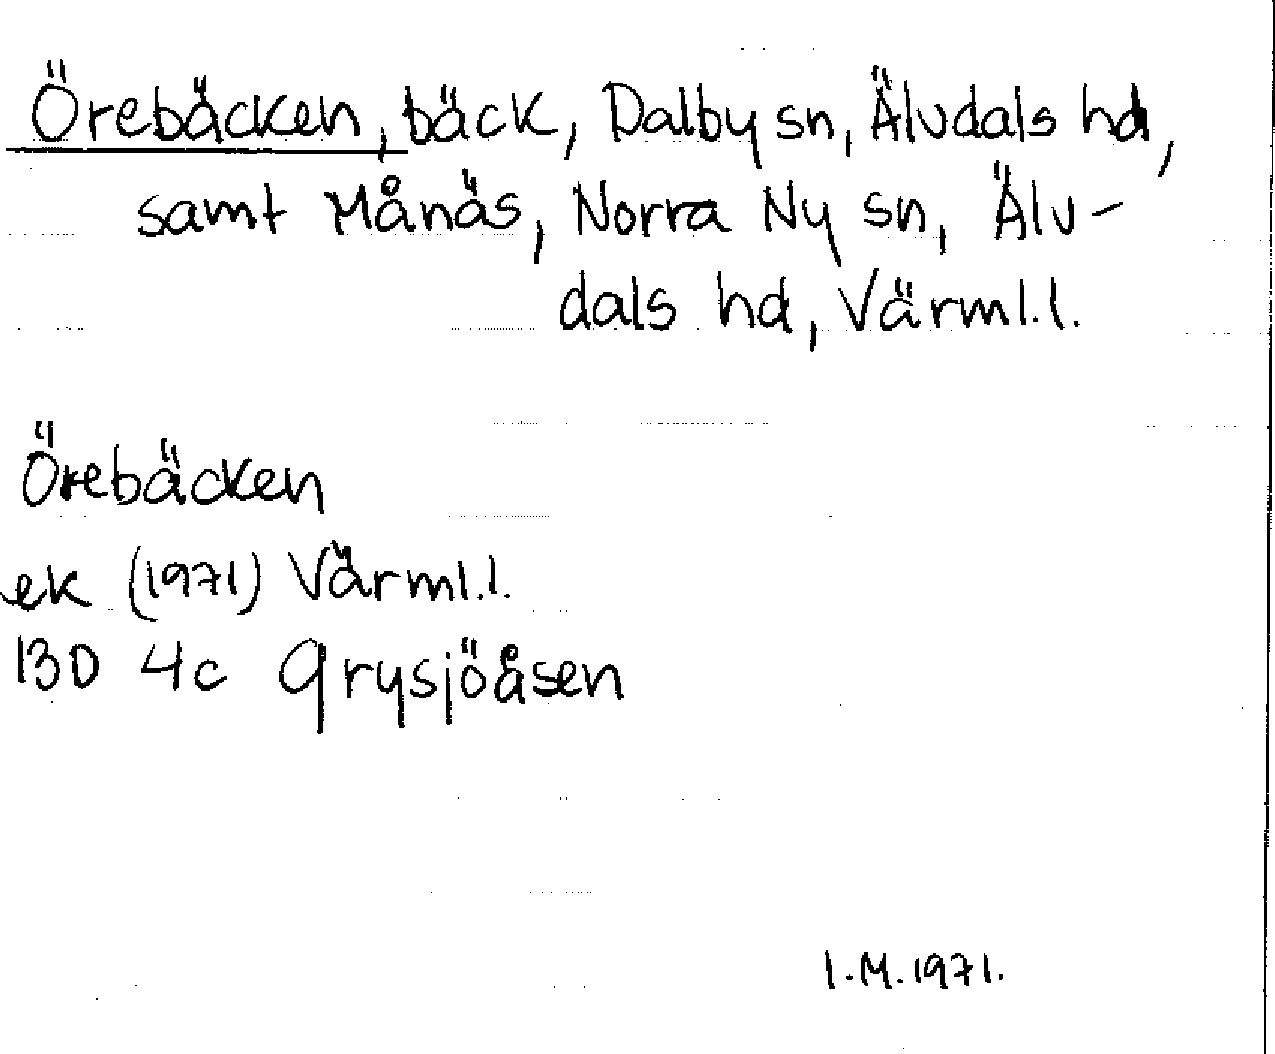 Örebäcken, bäck, Dalby sn, Älvdals hd,
samt Månäs, Norra Ny sn, Älv-
dals hd, Värml.l.
Örebäcken
ek (1971) Värml.l.
13D 4c Grysjöåsen
I.M.1971.